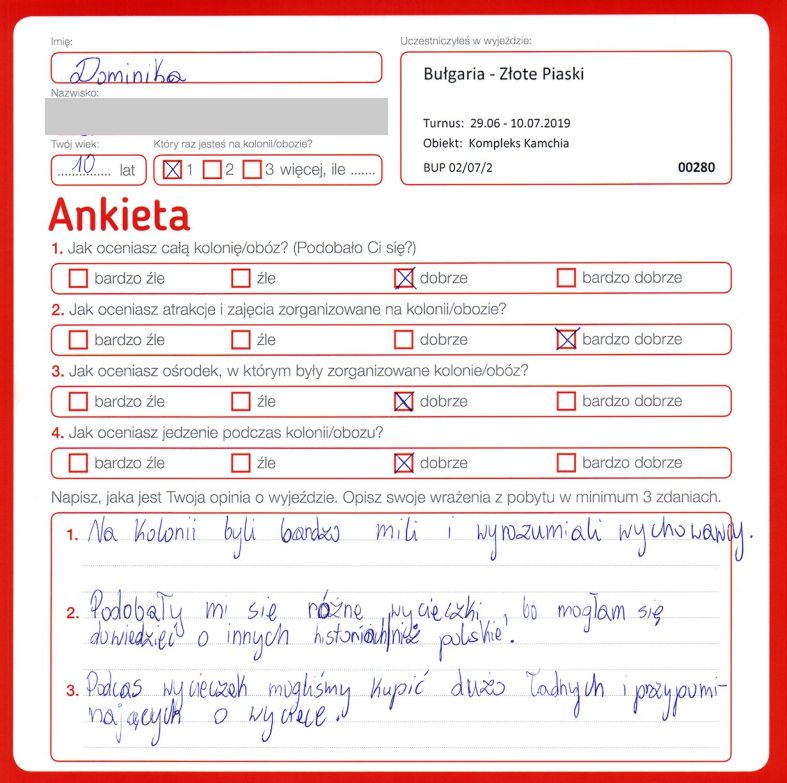 Imię:
Uczestniczyłeś w wyjeździe:
Dominika
Bułgaria - Złote Piaski
Nazwisko:
Turnus: 29.06 - 10.07.2019
Twój wiek:
Który raz jesteś na kolonii/obozie?
Obiekt: Kompleks Kamchia
10 lat
1 2 3 więcej, ile .......
BUP 02/07/2 00280
Ankieta
1. Jak oceniasz całą kolonię/obóz? (Podobało Ci się?)
bardzo źle źle dobrze bardzo dobrze
2. Jak oceniasz atrakcje i zajęcia zorganizowane na kolonii/obozie?
bardzo źle źle dobrze bardzo dobrze
3. Jak oceniasz ośrodek, w którym były zorganizowane kolonie/obóz?
bardzo źle źle dobrze bardzo dobrze
4. Jak oceniasz jedzenie podczas kolonii/obozu?
bardzo źle źle dobrze bardzo dobrze
Napisz, jaka jest Twoja opinia o wyjeździe. Opisz swoje wrażenia z pobytu w minimum 3 zdaniach.
1. Na kolonii byli bardzo mili i wyrozumiali wychowawcy.
2. Podobały mi się różne wycieczki, bo mogłam się
dowiedzieć o innych historiach niż polskie.
3. Podczas wycieczek mogliśmy kupić dużo ładnych i przypomi-
nających o